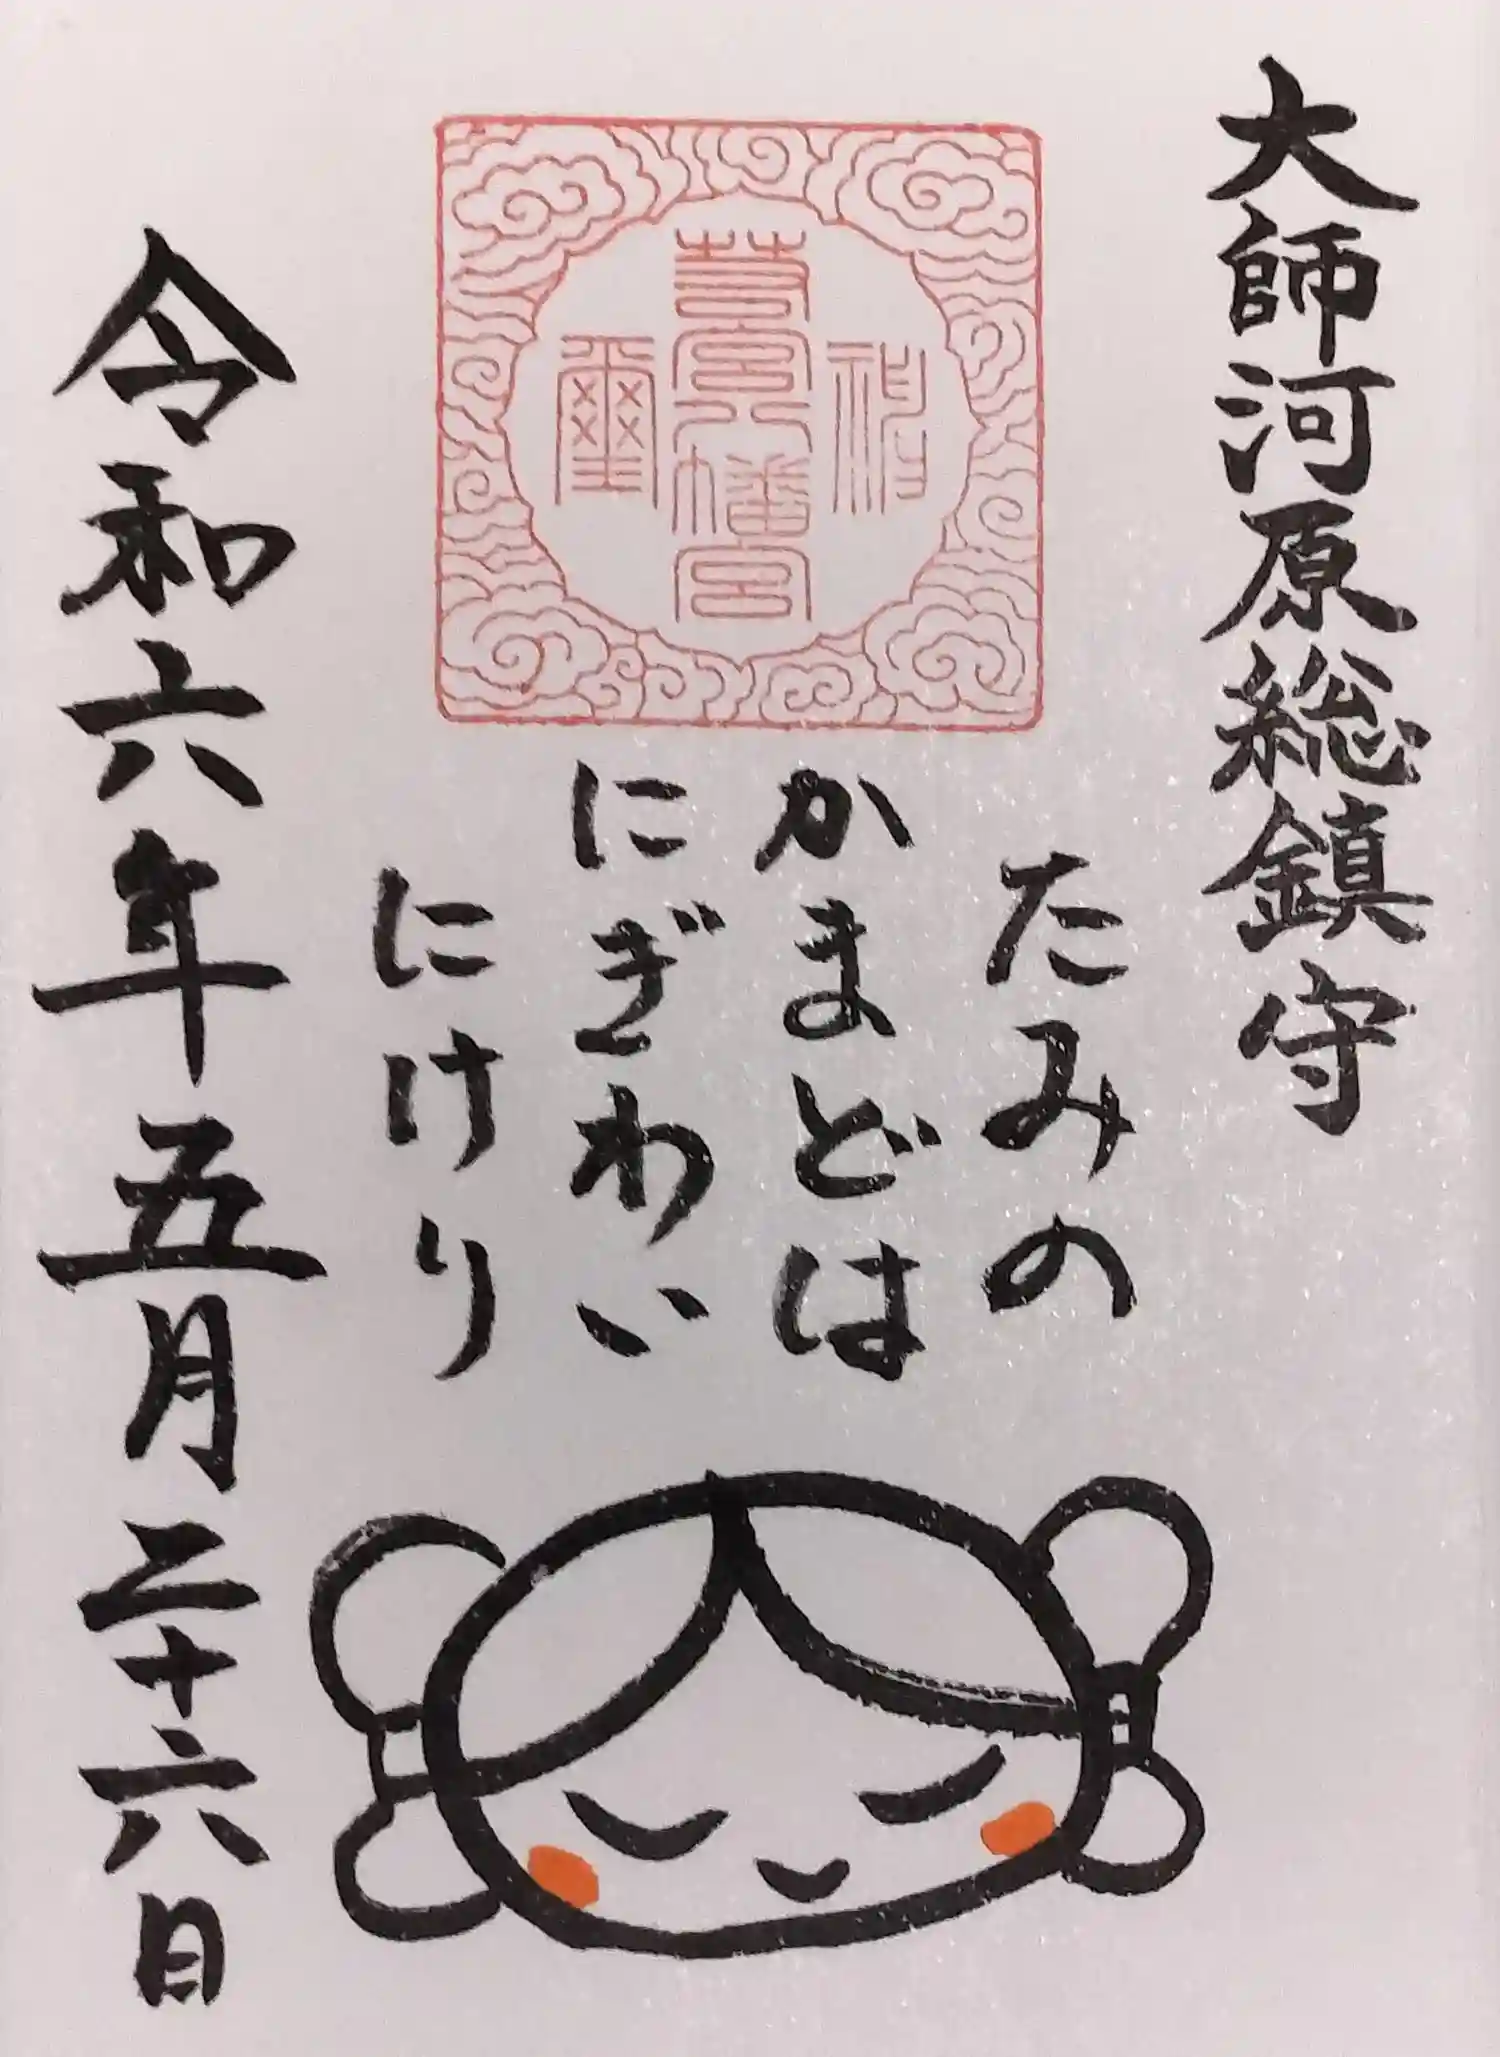 大師河原総鎮守
たみの
かまどは
にぎわい
にけり
若宮八幡宮
神璽
令和六年五月二十六日